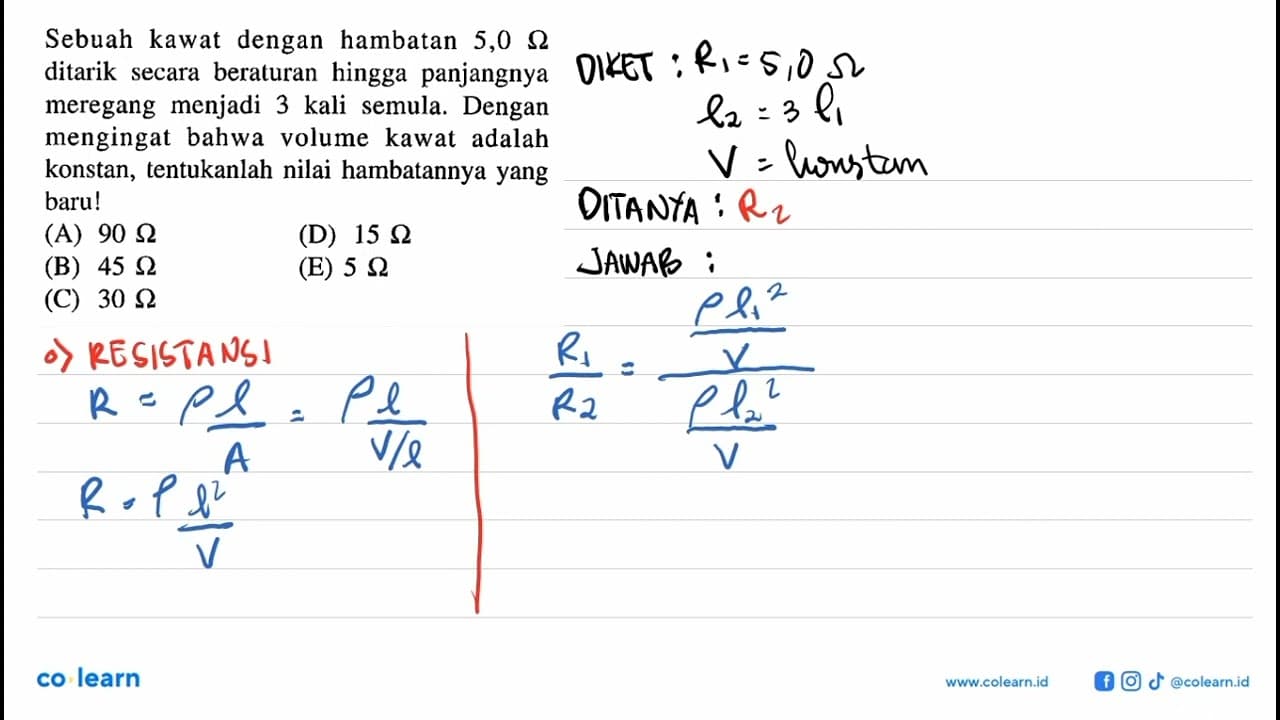 Sebuah kawat dengan hambatan 5,0 Ω
ditarik secara beraturan hingga panjangnya
meregang menjadi 3 kali semula. Dengan
mengingat bahwa volume kawat adalah
konstan, tentukanlah nilai hambatannya yang
baru!
(A) 90 Ω
(B) 45 Ω
(C) 30 Ω
(D) 15 Ω
(E) 5 Ω
DIKET : R₁ = 5,0 Ω
l₂ = 3 l₁
V = konstan
DITANYA : R₂
JAWAB :
o) RESISTANSI
R = ρ l/A = ρ l/(V/l)
R = ρ l²/V
R₁/R₂ = (ρ l₁²/V)/(ρ l₂²/V)
co learn
www.colearn.id
@colearn.id